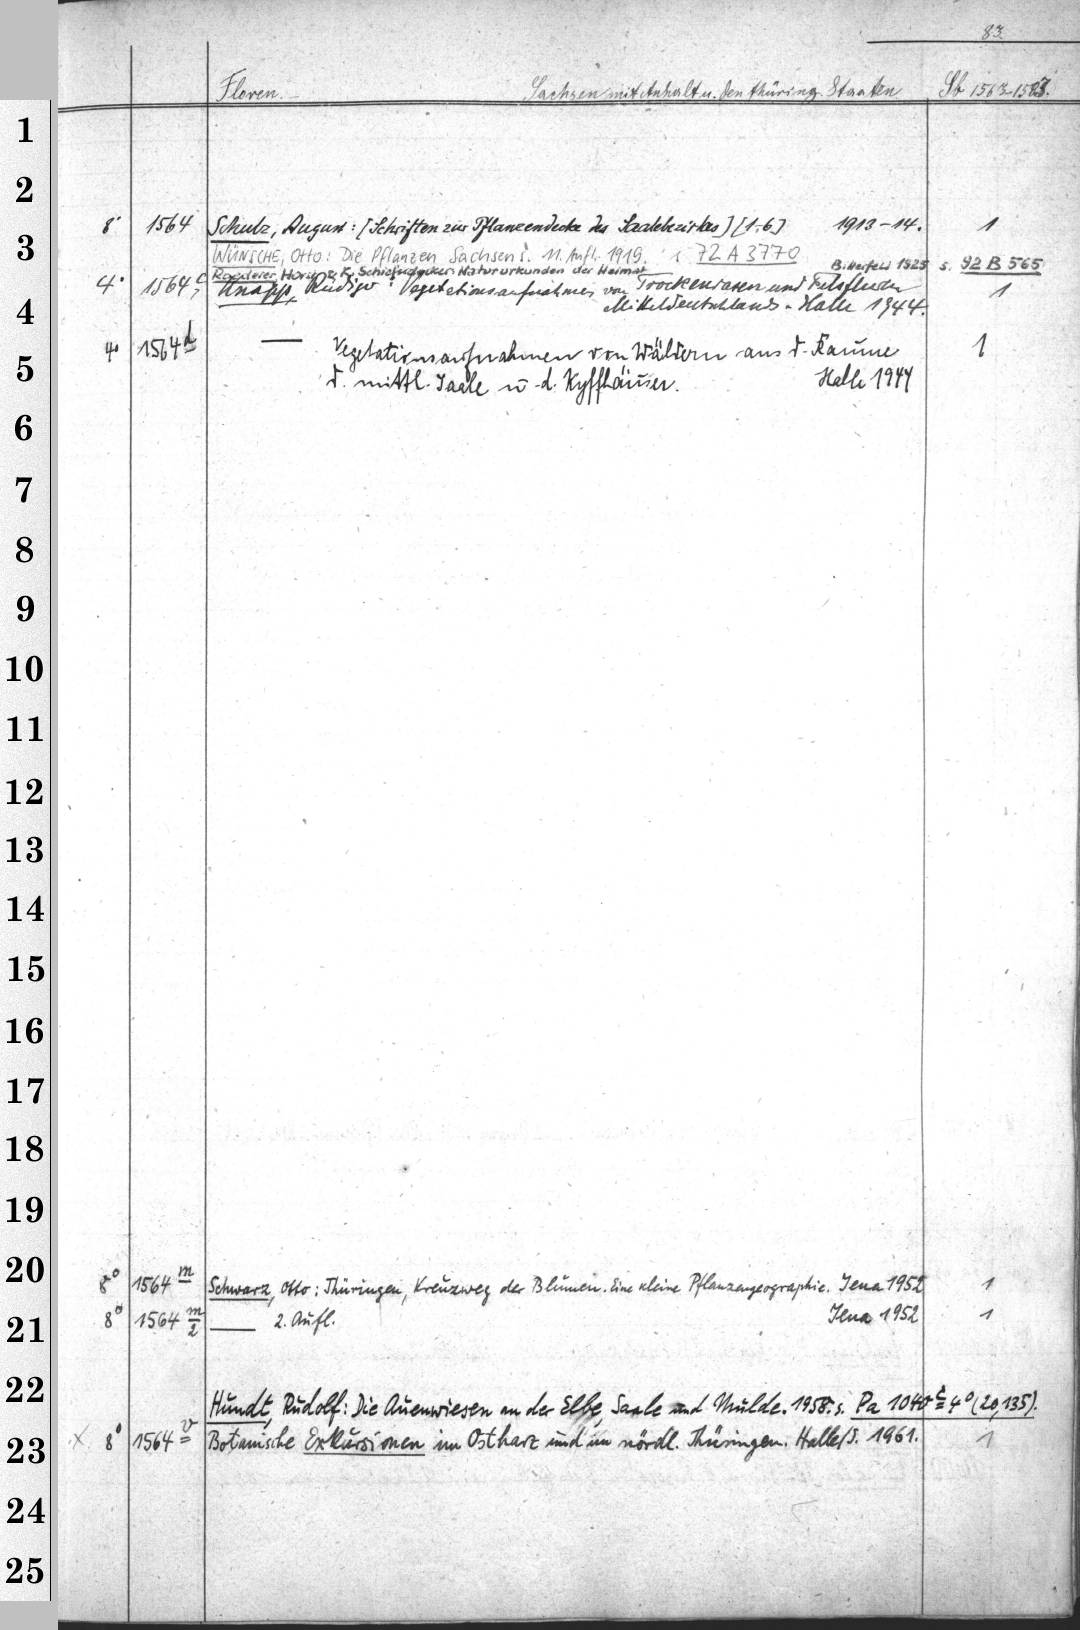 83.
Floren. Sachsen mit Anhalt u. den thüring. Staaten Sb 1563-1583.
1
2
8° 1564 Schulz, August: [Schriften zur Pflanzendecke des Saalebezirkes] [1-6] 1913-14. 1
3 WÜNSCHE, Otto: Die Pflanzen Sachsens. 11. Aufl. 1919. 72 A 3770
Horing & K. Naturürkunden der Heimat Bitterfeld 1925 s. 92 B 565
4° 1564 c Knapp, Rüdiger: Vegetationsaufnahmen von Trockenrasen und Felsfluren 1
4 Mitteldeutschlands. Halle 1944.
4° 1564 d — Vegetationsaufnahmen von Wäldern aus d. Raume 1
5 d. mittl. Saale u. d. Kyffhäuser. Halle 1944
6
7
8
9
10
11
12
13
14
15
16
17
18
19
20
8° 1564 m Schwarz, Otto: Thüringen, Kreuzweg der Blumen. Eine kleine Pflanzengeographie. Jena 1952 1
21 8° 1564 m/2 — 2. Aufl. Jena 1952 1
22
Hundt, Rudolf: Die Auenwiesen an der Elbe, Saale und Mulde. 1958. s. Pa 1040 c 4° (20,135).
23 x 8° 1564 v Botanische Exkursionen im Ostharz und im nördl. Thüringen. Halle/S. 1961. 1
24
25